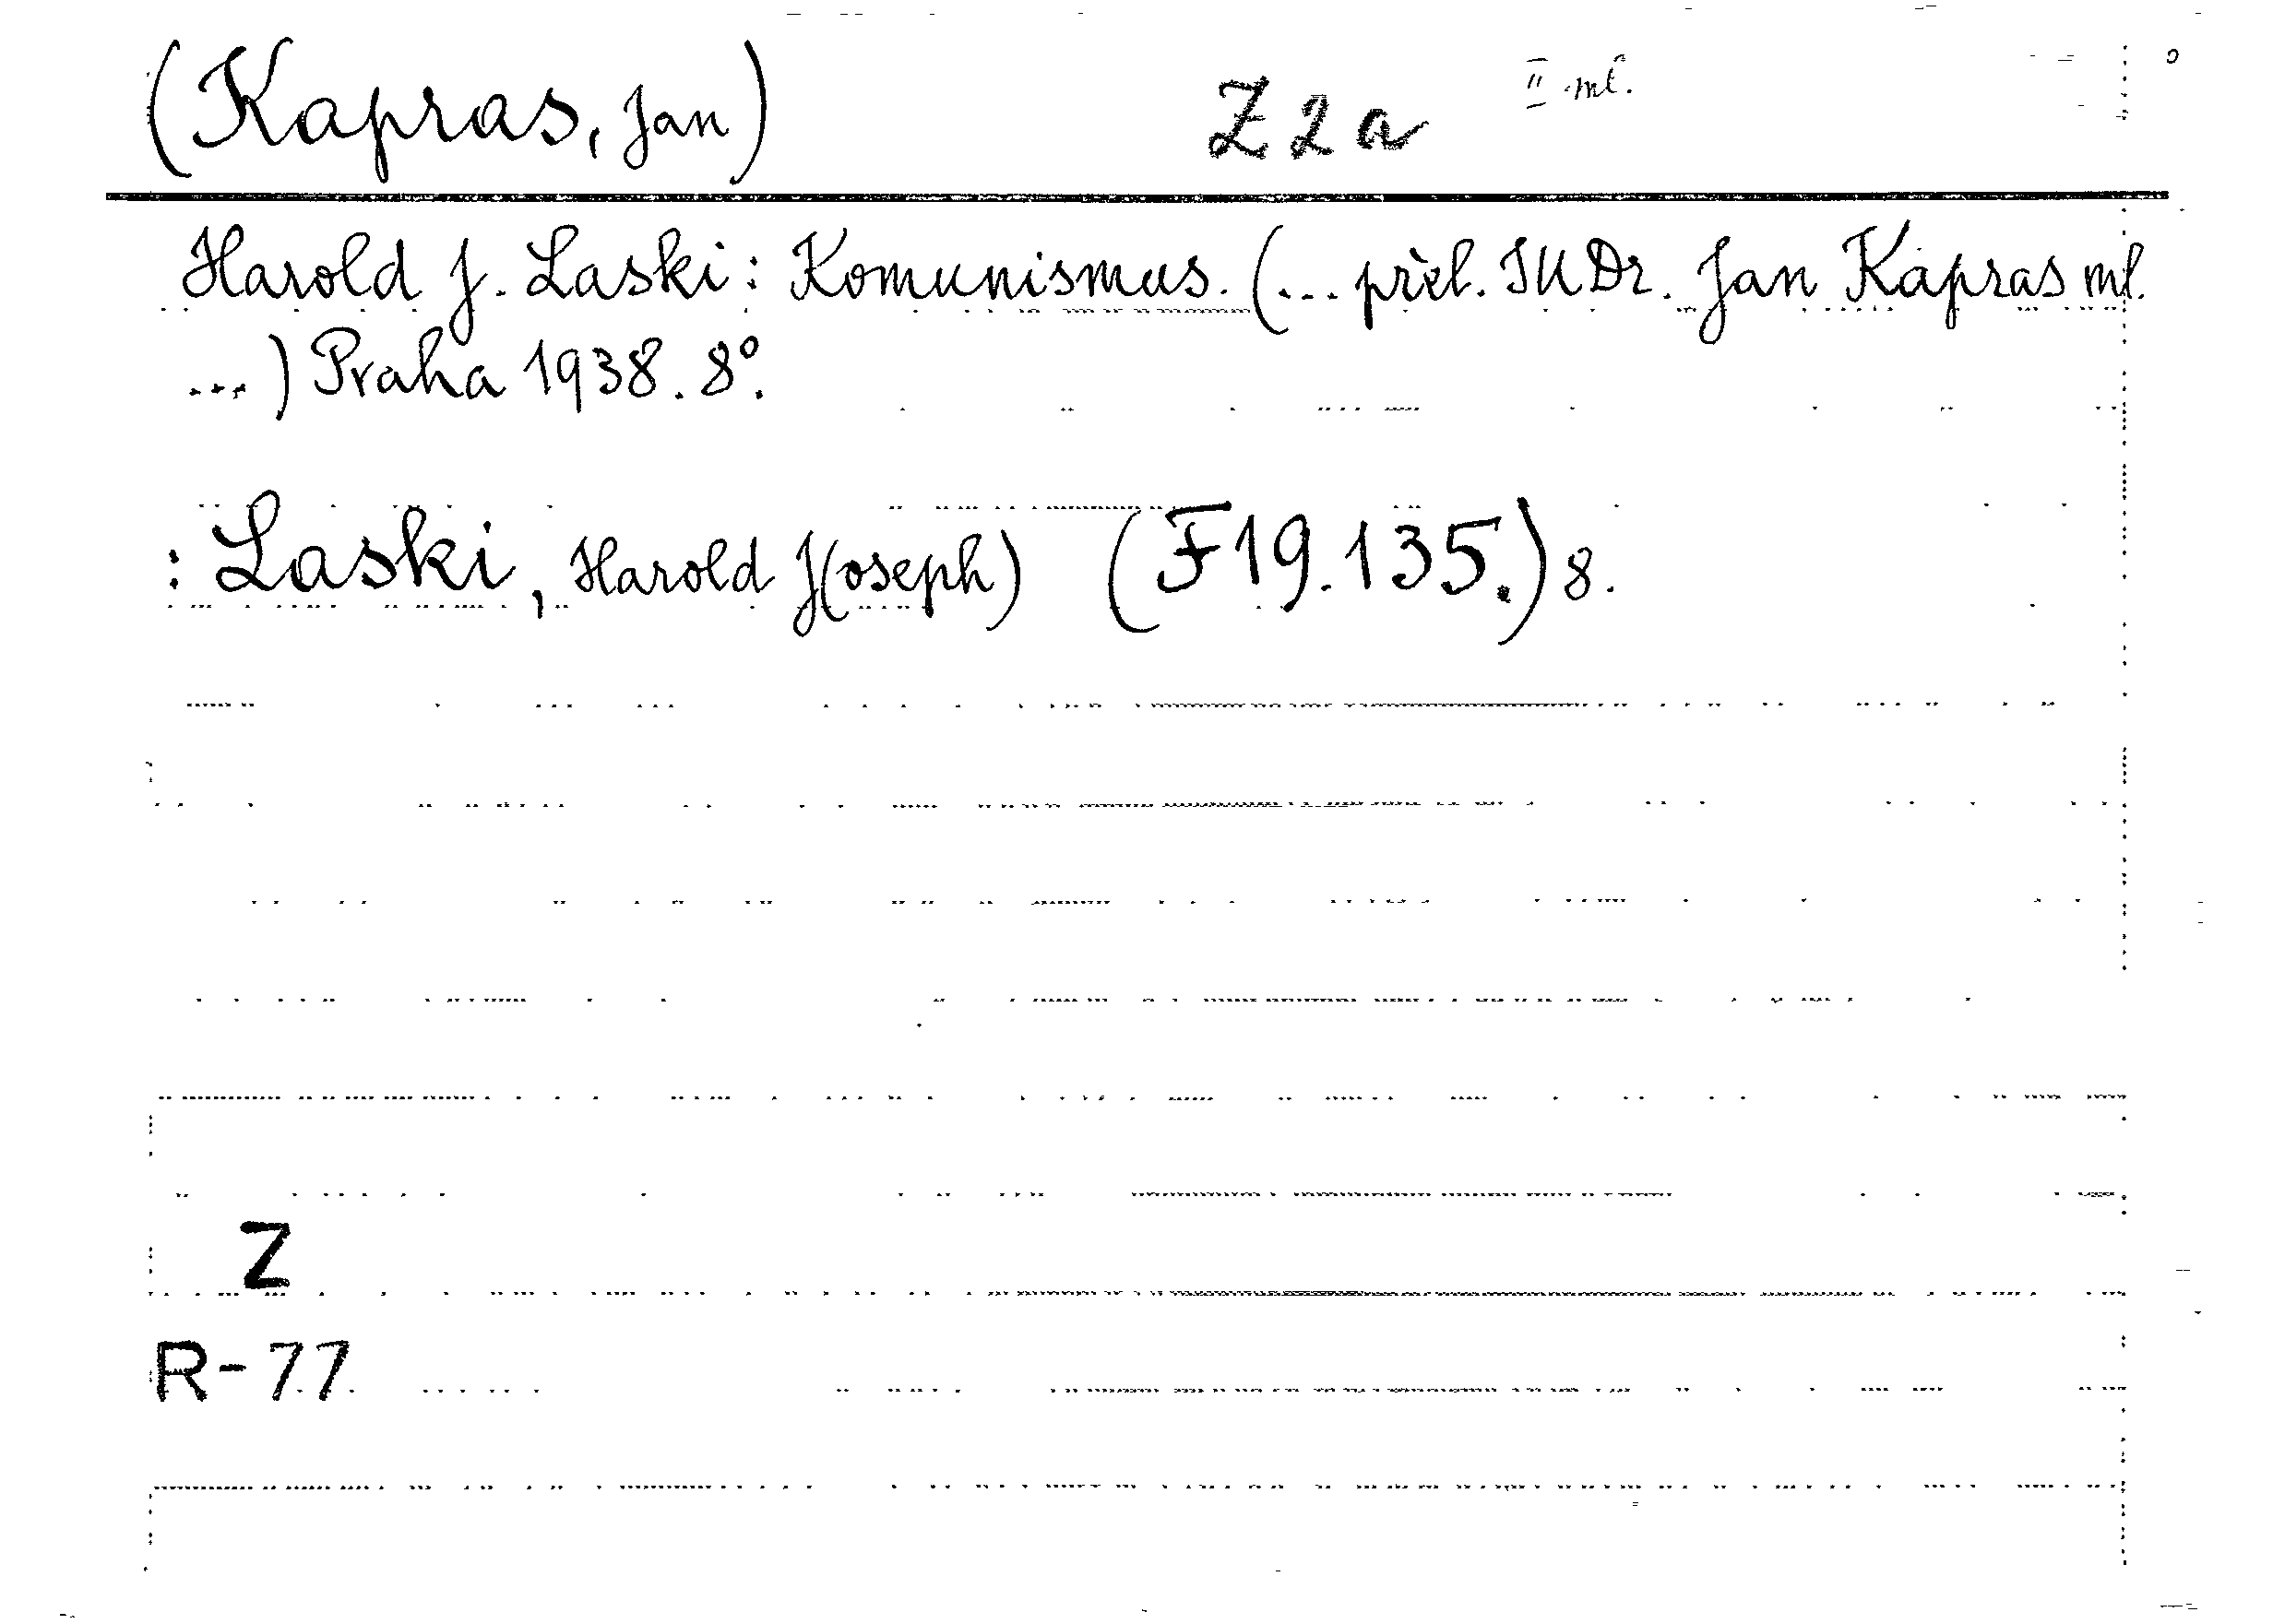 (Kapras, Jan) Z 2 a II ml.
Harold J. Laski: Komunismus. (... přel. JUDr. Jan Kapras ml.
...) Praha 1938. 8°.
: Laski, Harold J(oseph) (F19.135.) 8.
Z
R-77